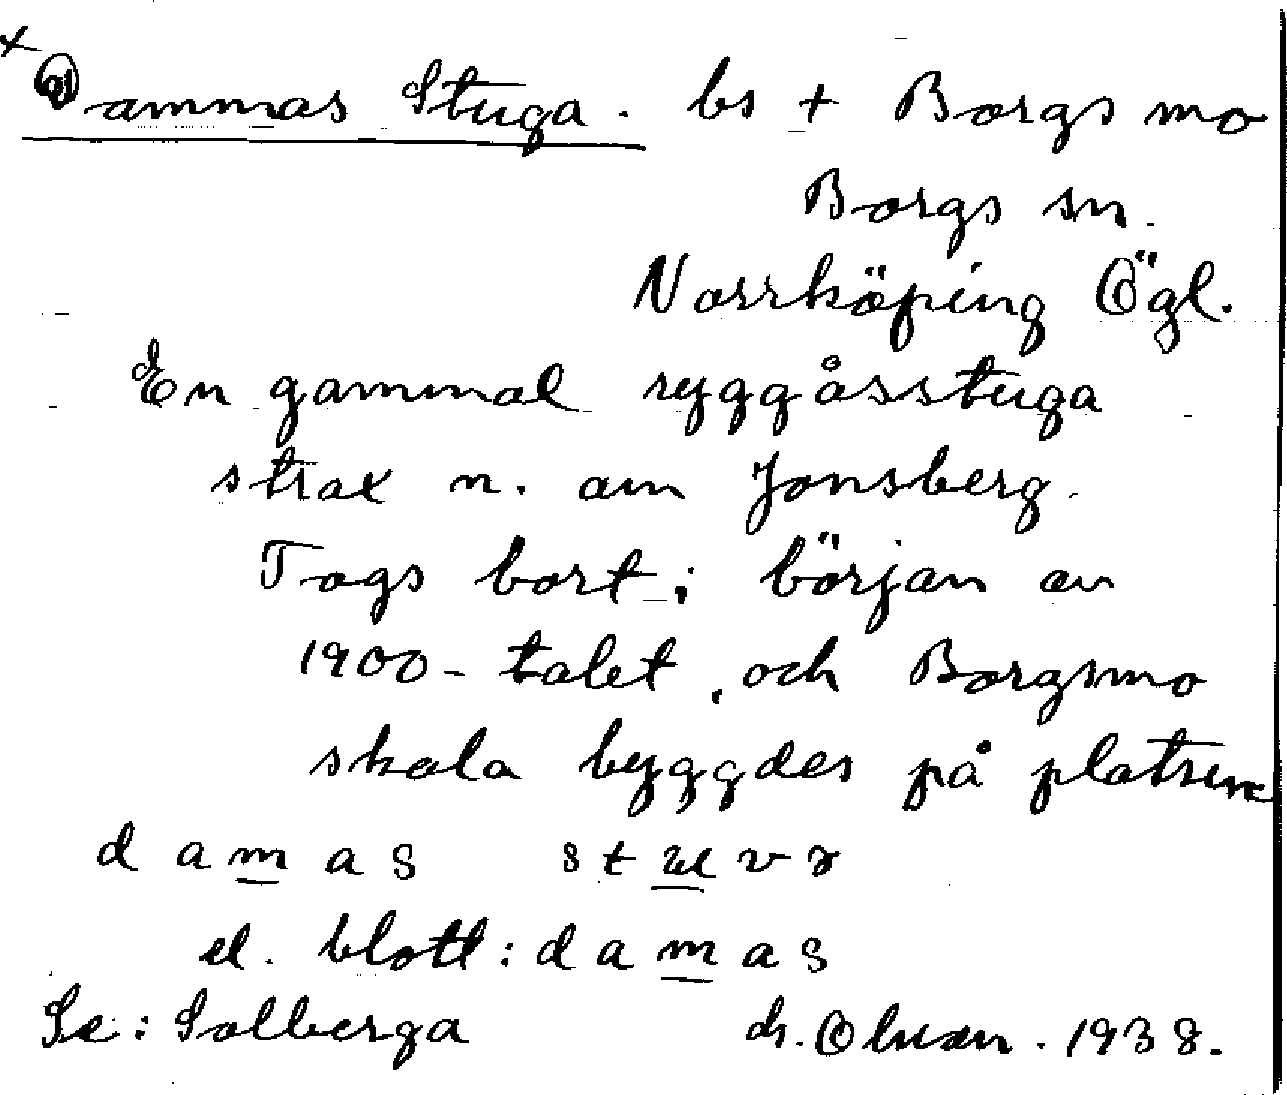 + Dammas Stuga. bs + Borgs mo
Borgs sn.
Norrköping Ögl.
En gammal ryggåsstuga
strax n. om Jonsberg.
Togs bort i början av
1900-talet, och Borgsmo
skola byggdes på platsen
d a m a s s t u v
el. blott: d a m a s
Se: Solberga 1938.